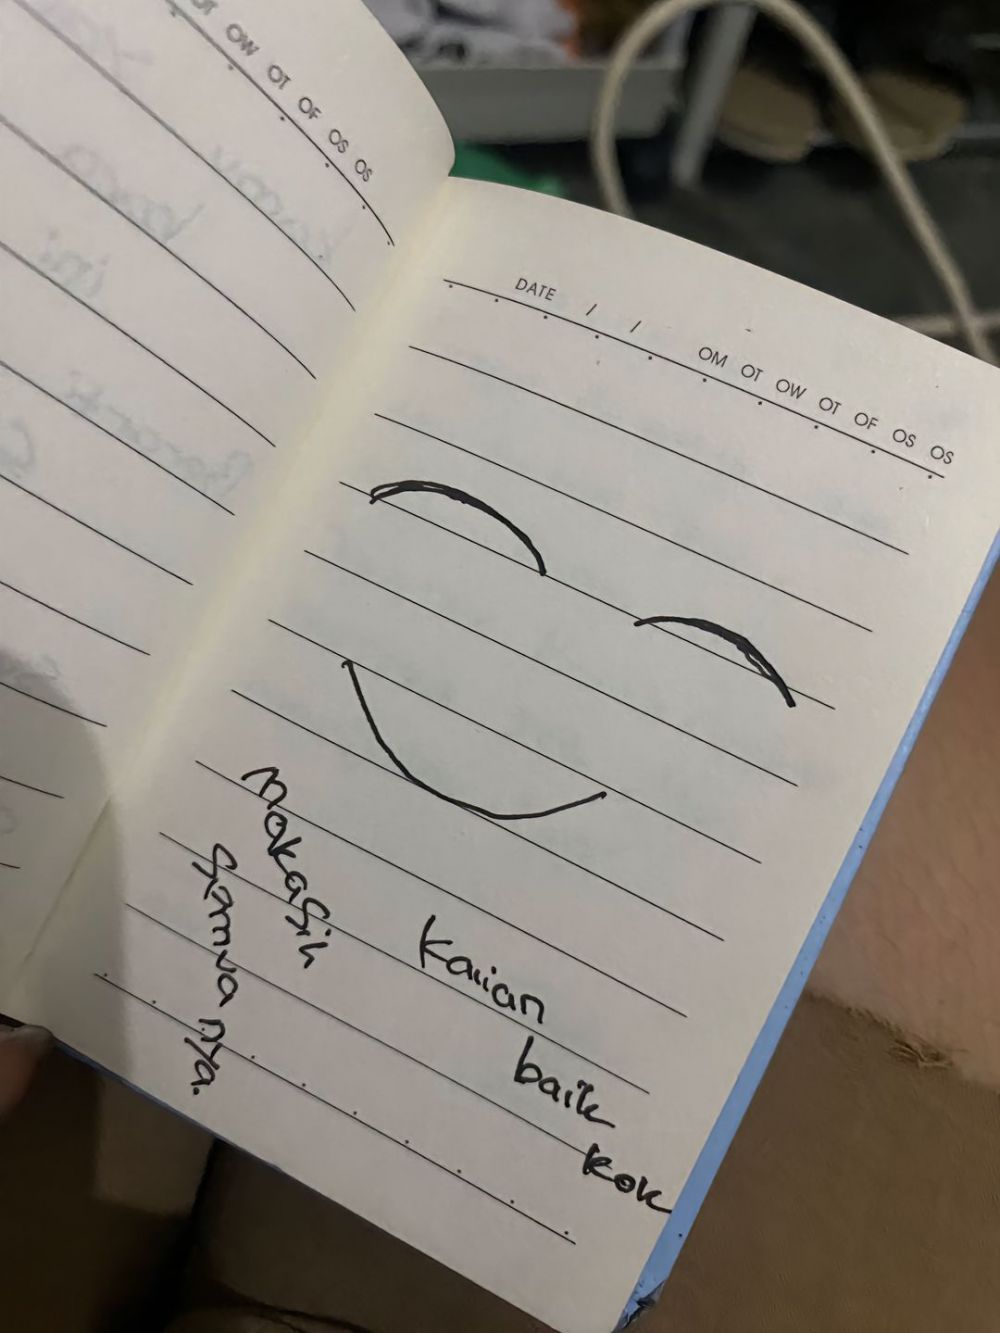 OT OW OT OF OS OS
DATE / / OM OT OW OT OF OS OS
makasih
semua nya.
kalian
baik
kok